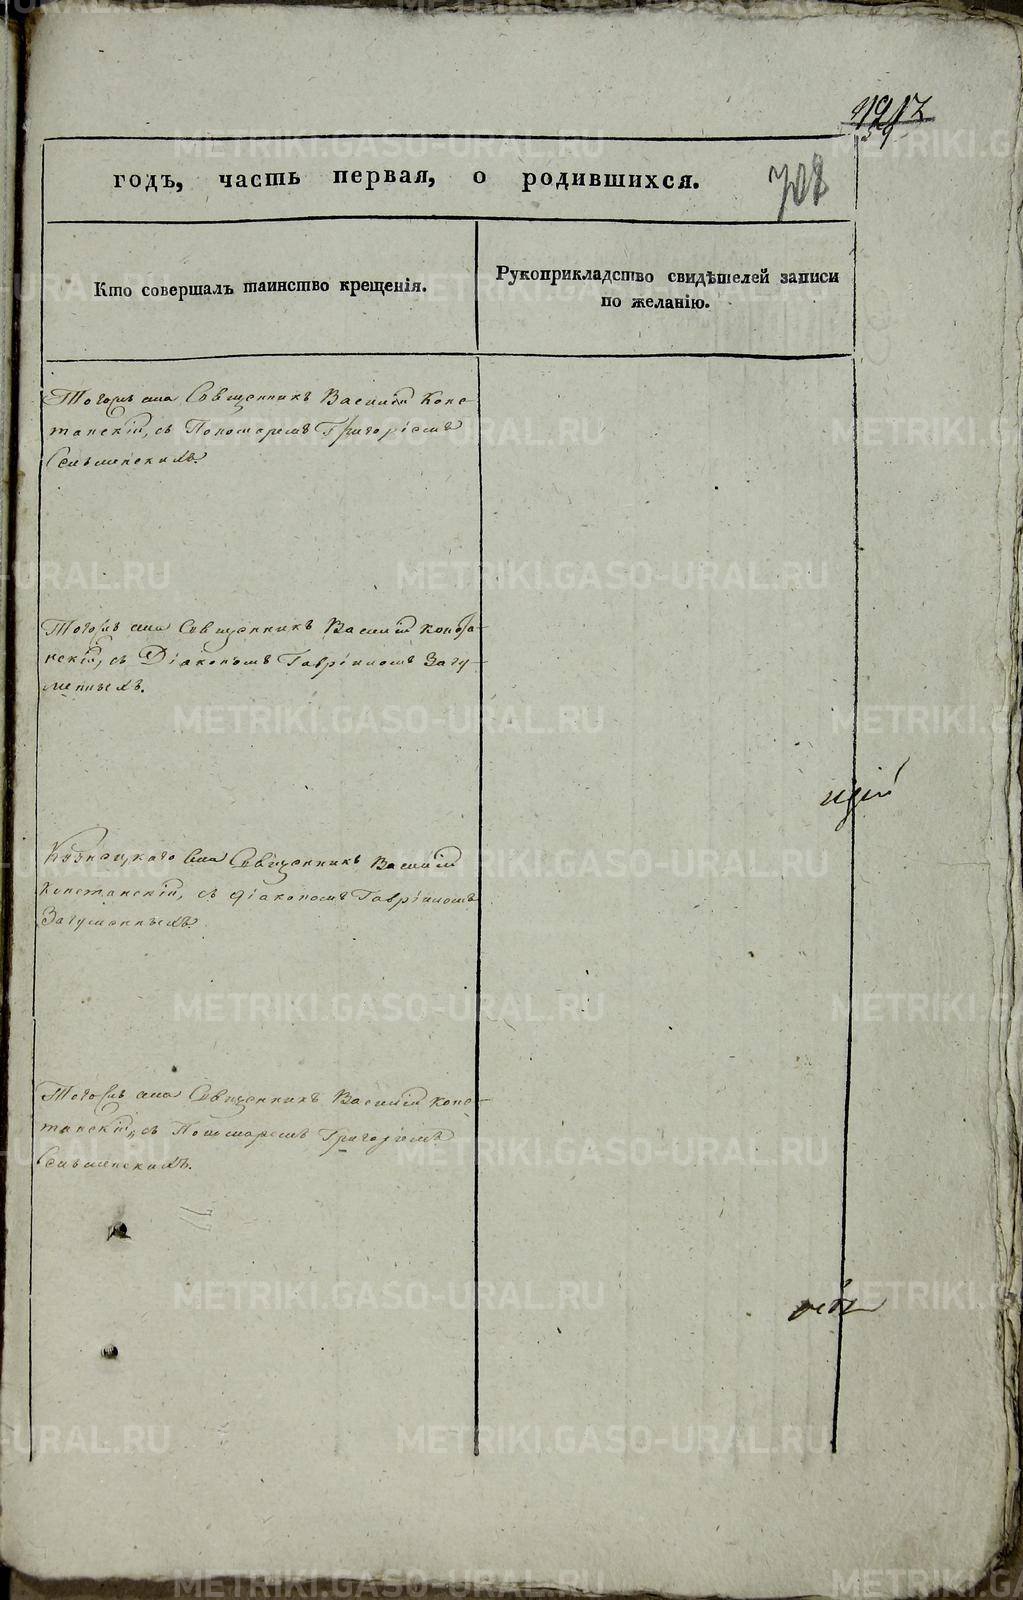 708
годъ, часть первая, о родившихся.
Кто совершалъ таинство крещенія.
Рукоприкладство свидѣтелей записи
по желанію.
Тогожъ села Священникъ Василій Конс-
танскій, съ Пономаремъ Григоріемъ
Тогожъ села Священникъ Василій Конста-
нскій, съ Діакономъ Гавріиломъ Загу-
менныхъ.
села Священникъ Василій
Констанскій, съ діакономъ Гавріиломъ
Загуменныхъ.
Тогожъ села Священникъ Василій Конс-
танскій, съ Пономаремъ Григоріемъ
METRIKI.GASO-URAL.RU